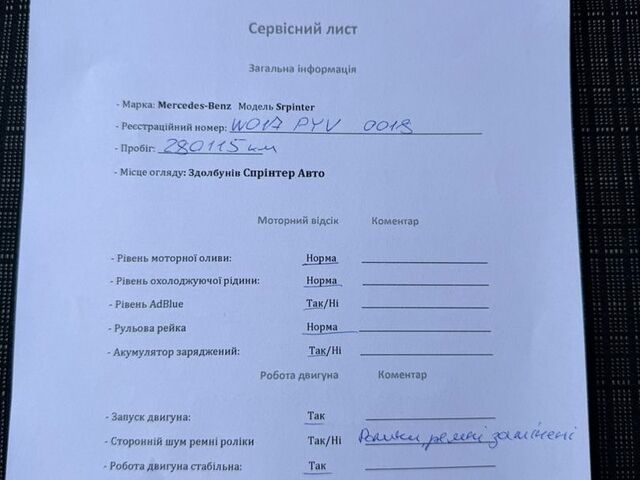 Сервісний лист
Загальна інформація
- Марка: Mercedes-Benz Модель Srpinter
- Реєстраційний номер: W017 PYV 0018
- Пробіг: 280115 км
- Місце огляду: Здолбунів Спрінтер Авто
Моторний відсік Коментар
- Рівень моторної оливи: Норма
- Рівень охолоджуючої рідини: Норма
- Рівень AdBlue Так/Ні
- Рульова рейка Норма
- Акумулятор заряджений: Так/Ні
Робота двигуна Коментар
- Запуск двигуна: Так
- Сторонній шум ремні роліки Так/Ні Ролики, ремні замінені
- Робота двигуна стабільна: Так